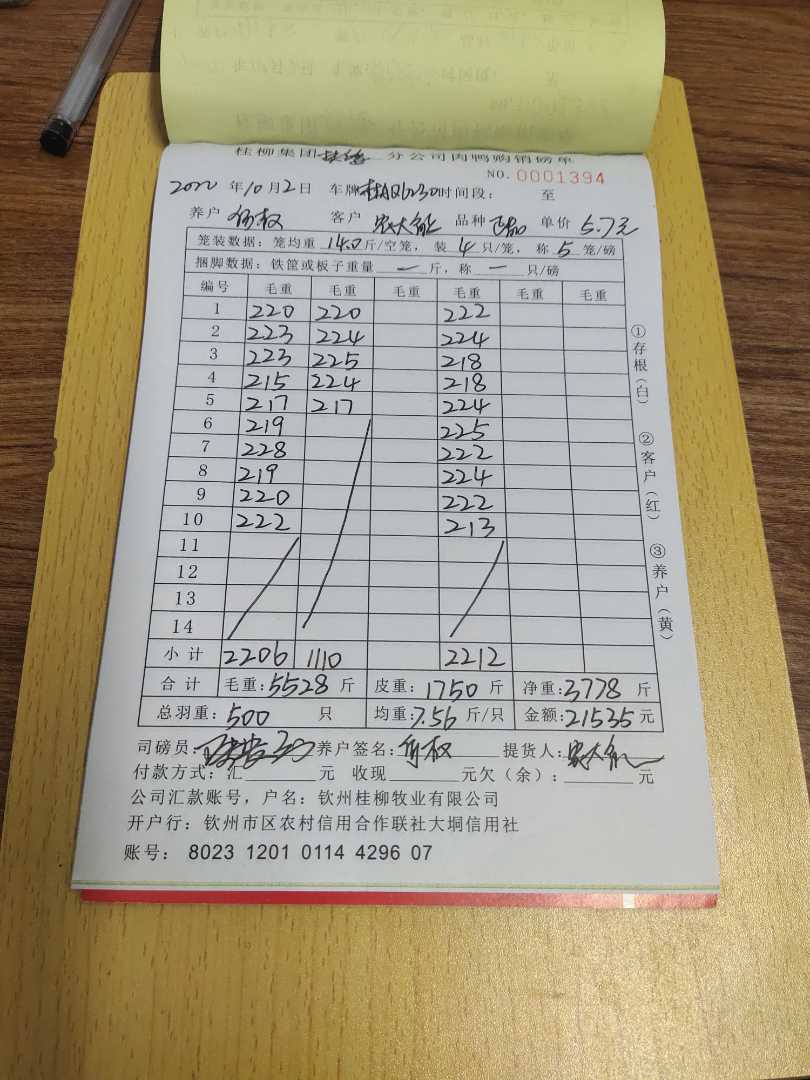 桂柳集团 分公司肉鸭购销磅单
NO. 0001394
2022 年 10 月 2 日 车牌 时间段: 至
养户 客户 农大 品种 正品 单价 5.7元
笼装数据: 笼均重 14.0 斤/空笼, 装 4 只/笼, 称 5 笼/磅
捆脚数据: 铁筐或板子重量 一 斤, 称 一 只/磅
编号 毛重 毛重 毛重 毛重 毛重 毛重
1 220 220 222
2 223 224 224
3 223 225 218
4 215 224 218
5 217 217 224
6 219 225
7 228 222
8 219 224
9 220 222
10 222 213
11
12
13
14
小计 2206 1110 2212
合计 毛重: 5528 斤 皮重: 1750 斤 净重: 3778 斤
总羽重: 500 只 均重: 7.56 斤/只 金额: 21535 元
司磅员: 养户签名: 提货人: 农大
付款方式: 汇 元 收现 元欠(余): 元
公司汇款账号, 户名: 钦州桂柳牧业有限公司
开户行: 钦州市区农村信用合作联社大垌信用社
账号: 8023 1201 0114 4296 07
①存根(白)
②客户(红)
③养户(黄)